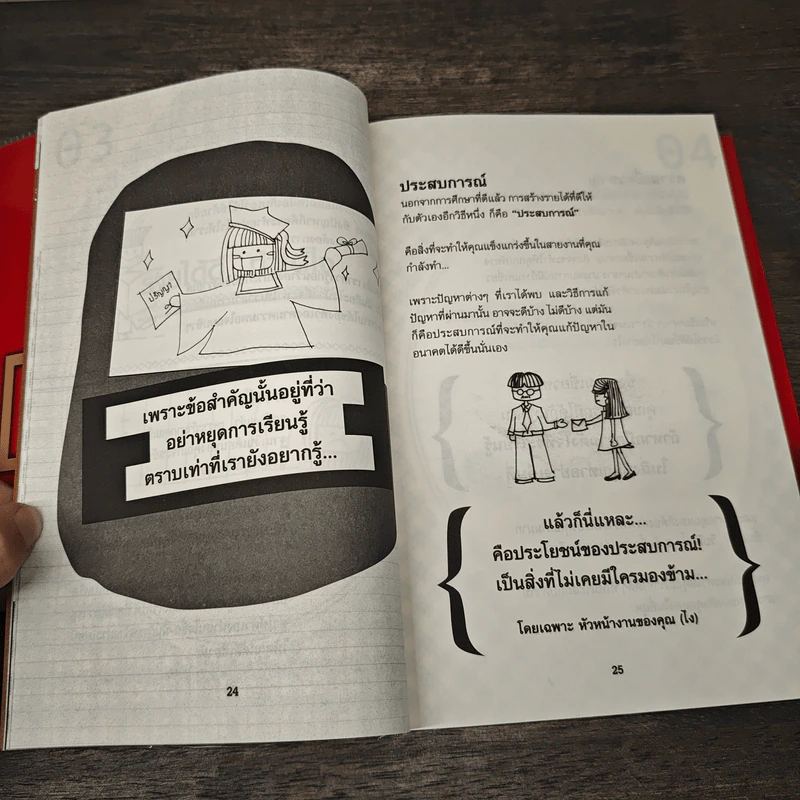 03
ปริญญา
เพราะข้อสำคัญนั้นอยู่ที่ว่า
อย่าหยุดการเรียนรู้
ตราบเท่าที่เรายังอยากรู้...
24
04
ประสบการณ์
นอกจากการศึกษาที่ดีแล้ว การสร้างรายได้ที่ดีให้
กับตัวเองอีกวิธีหนึ่ง ก็คือ “ประสบการณ์”
คือสิ่งที่จะทำให้คุณแข็งแกร่งขึ้นในสายงานที่คุณ
กำลังทำ...
เพราะปัญหาต่างๆ ที่เราได้พบ และวิธีการแก้
ปัญหาที่ผ่านมานั้น อาจจะดีบ้าง ไม่ดีบ้าง แต่มัน
ก็คือประสบการณ์ที่จะทำให้คุณแก้ปัญหาใน
อนาคตได้ดีขึ้นนั่นเอง
แล้วก็นี่แหละ...
คือประโยชน์ของประสบการณ์!
เป็นสิ่งที่ไม่เคยมีใครมองข้าม...
โดยเฉพาะ หัวหน้างานของคุณ (ไง)
25